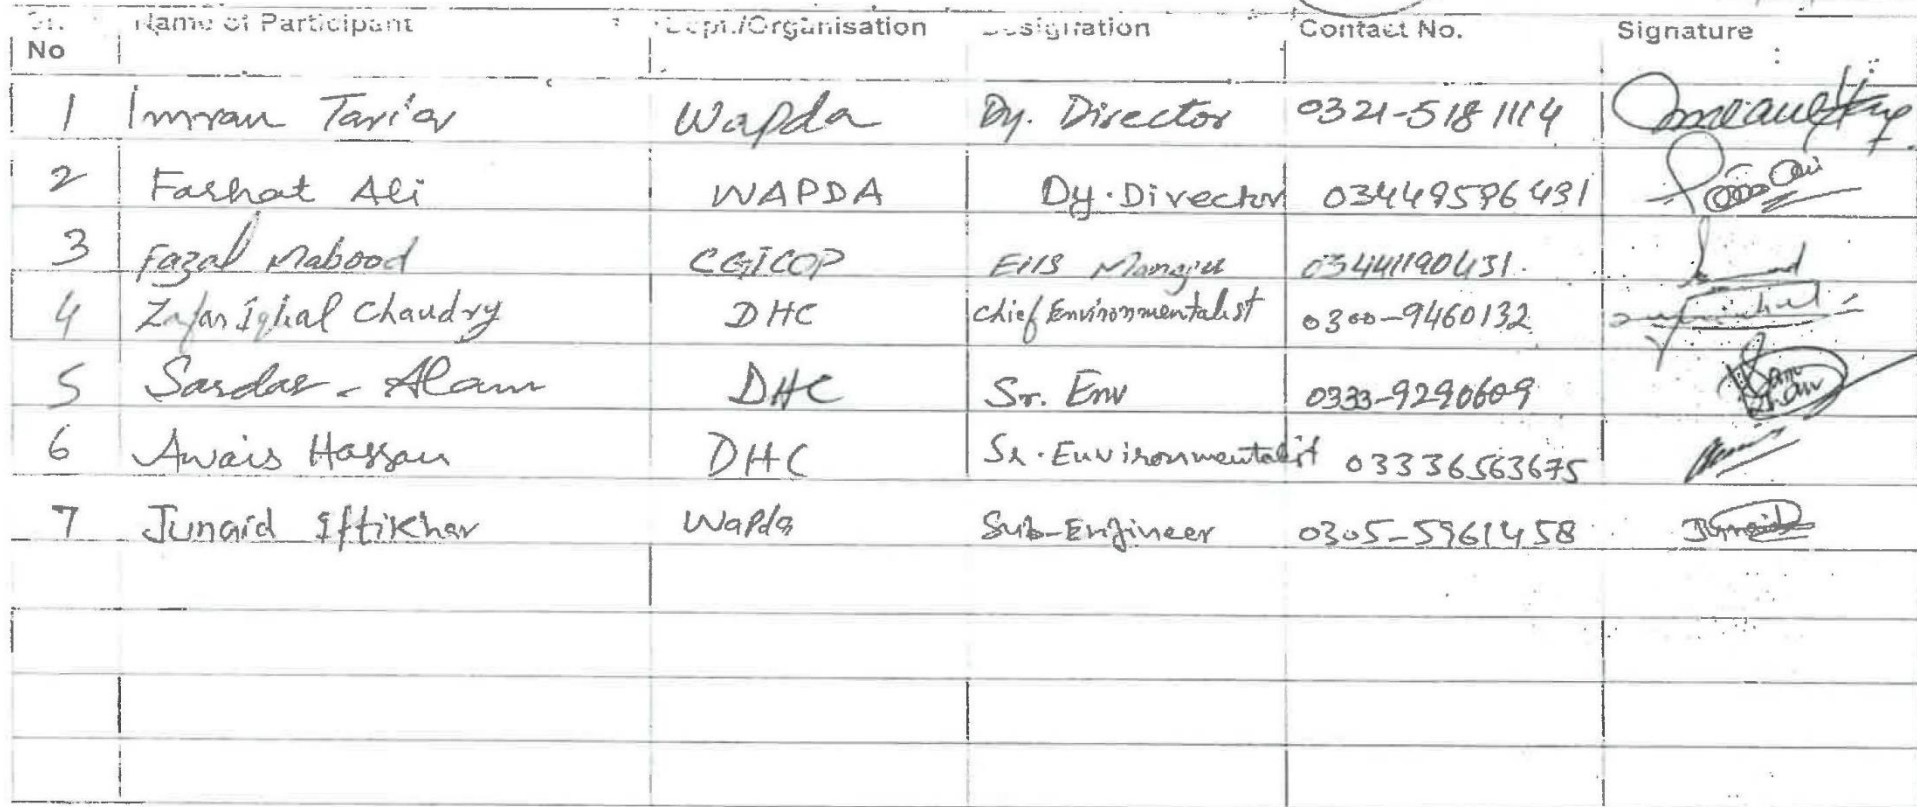 Sr. No Name of Participant Dept./Organisation Designation Contact No. Signature
1 Imran Tariq Wapda Dy. Director 0321-5181114
2 Farhat Ali WAPDA Dy. Director 03449596431
3 Fazal Mabood 03441190431
4 Zafar Iqbal Chaudry DHC Chief Environmentalist 0300-9460132
5 Sardar - Alam DHC Sr. Env 0333-9290609
6 Awais Hassan DHC Sr. Environmentalist 03336563675
7 Junaid Iftikhar Wapda Sub-Engineer 0305-5961458 Junaid